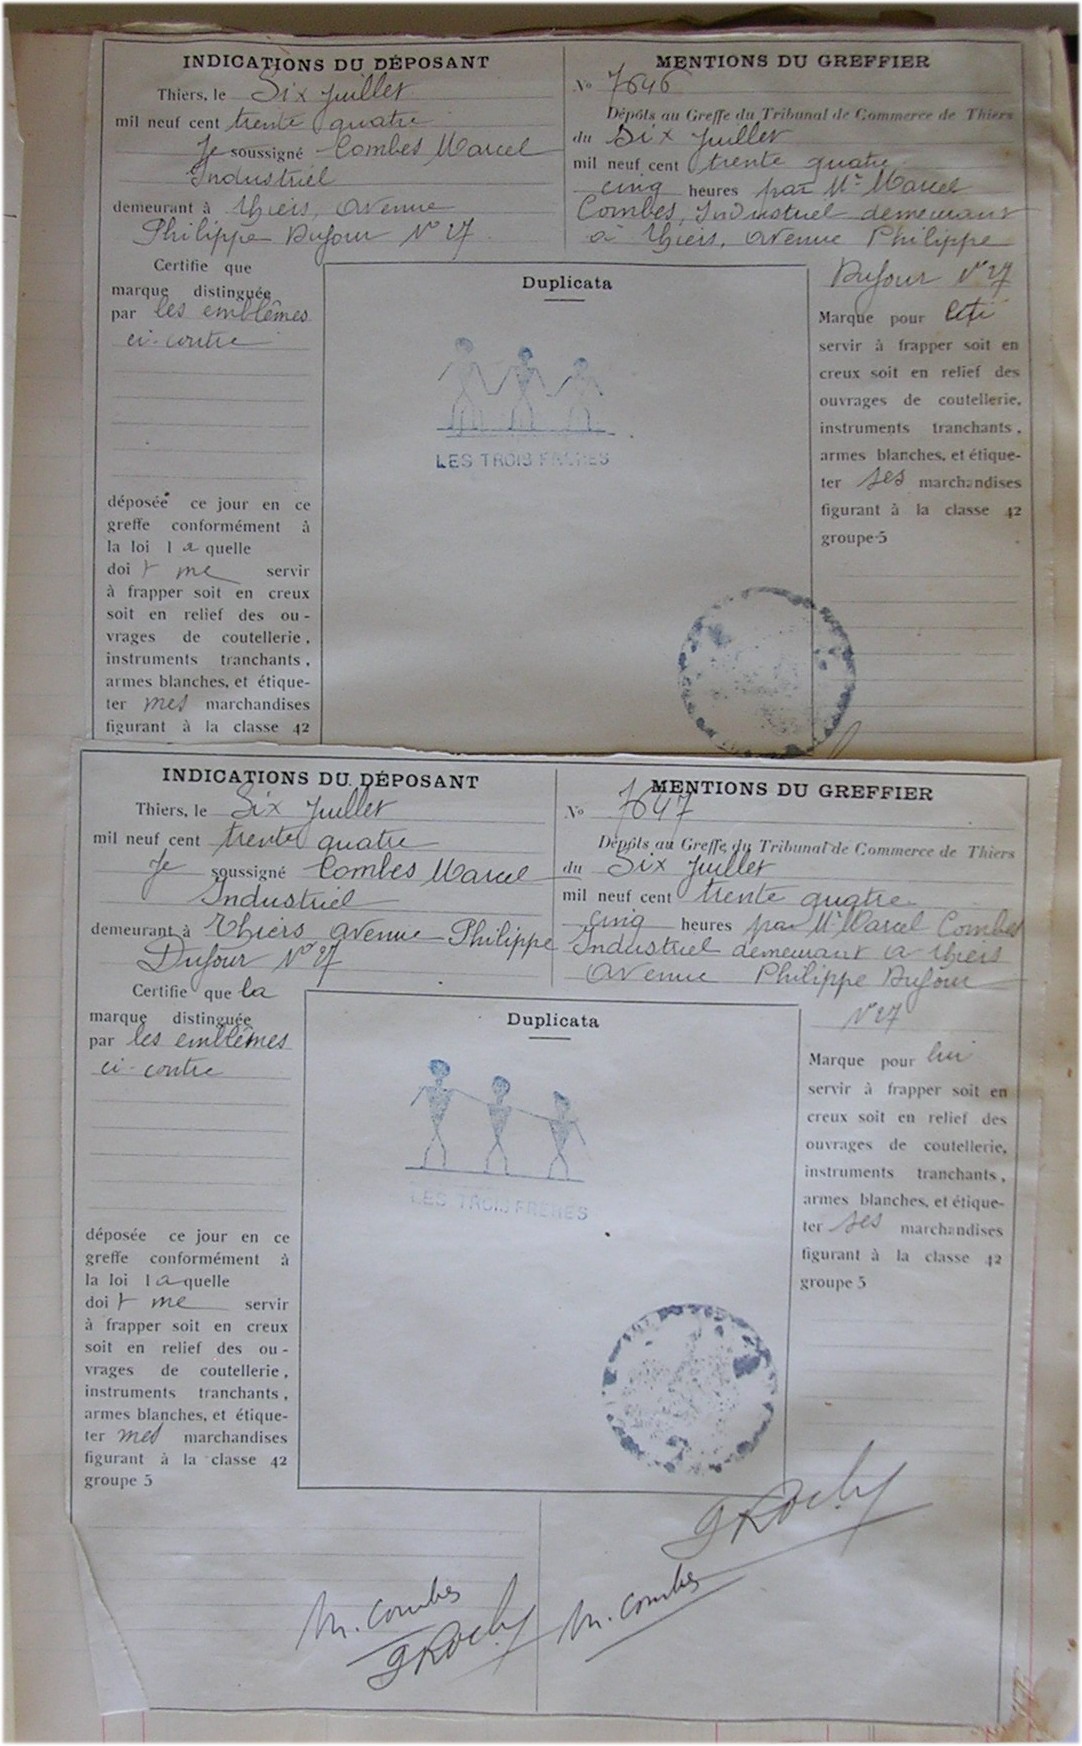 INDICATIONS DU DÉPOSANT
Thiers, le Six Juillet
mil neuf cent trente quatre
Je soussigné Combes Marcel
Industriel
demeurant à Thiers, Avenue
Philippe Dufour N° 27
Certifie que
marque distinguée
par les emblêmes
ci-contre
déposée ce jour en ce
greffe conformément à
la loi la quelle
doit me servir
à frapper soit en creux
soit en relief des ou-
vrages de coutellerie,
instruments tranchants,
armes blanches, et étique-
ter mes marchandises
figurant à la classe 42
Duplicata
LES TROIS FRÈRES
MENTIONS DU GREFFIER
No 7646
Dépôts au Greffe du Tribunal de Commerce de Thiers
du Six Juillet
mil neuf cent trente quatre
cinq heures par Mr Marcel
Combes, Industriel demeurant
à Thiers, avenue Philippe
Dufour N° 27
Marque pour
servir à frapper soit en
creux soit en relief des
ouvrages de coutellerie,
instruments tranchants,
armes blanches, et étique-
ter ses marchandises
figurant à la classe 42
groupe 5
INDICATIONS DU DÉPOSANT
Thiers, le Six Juillet
mil neuf cent trente quatre
Je soussigné Combes Marcel
Industriel
demeurant à Thiers avenue Philippe
Dufour N° 27
Certifie que la
marque distinguée
par les emblêmes
ci-contre
déposée ce jour en ce
greffe conformément à
la loi la quelle
doit me servir
à frapper soit en creux
soit en relief des ou-
vrages de coutellerie,
instruments tranchants,
armes blanches, et étique-
ter mes marchandises
figurant à la classe 42
groupe 5
Duplicata
LES TROIS FRÈRES
MENTIONS DU GREFFIER
No 7647
Dépôts au Greffe du Tribunal de Commerce de Thiers
du Six Juillet
mil neuf cent trente quatre
cinq heures par Mr Marcel Combes
Industriel demeurant à Thiers
avenue Philippe Dufour
N° 27
Marque pour lui
servir à frapper soit en
creux soit en relief des
ouvrages de coutellerie,
instruments tranchants,
armes blanches, et étique-
ter ses marchandises
figurant à la classe 42
groupe 5
M. Combes
M. Combes